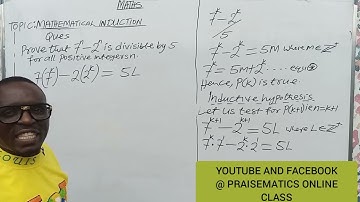 MATHS
TOPIC: MATHEMATICAL INDUCTION
Ques
Prove that 7ⁿ-2ⁿ is divisible by 5
for all positive integers n.
7(7ᵏ) - 2(2ᵏ) = 5L
7ᵏ-2ᵏ
/5
7ᵏ-2ᵏ = 5M where M∈Z⁺
7ᵏ = 5M+2ᵏ
Hence, P(k) is true
Inductive hypothesis
Let us test for P(k+1) ie n=k+1
7ᵏ⁺¹ - 2ᵏ⁺¹ = 5L where L∈Z⁺
7ᵏ·7 - 2ᵏ·2¹ = 5L
YOUTUBE AND FACEBOOK
@ PRAISEMATICS ONLINE
CLASS